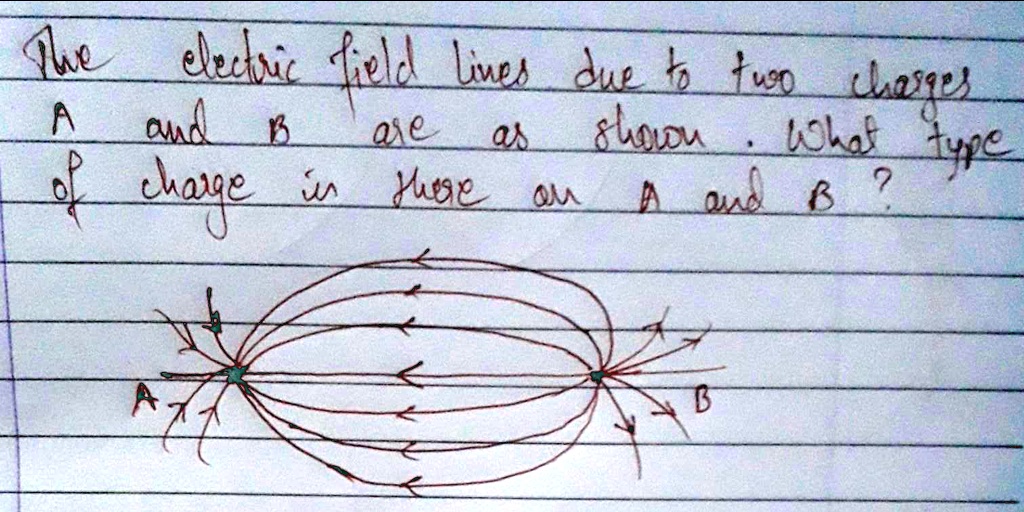 The electric field lines due to two charges
A and B are as shown. What type
of charge is there on A and B ?
A
B